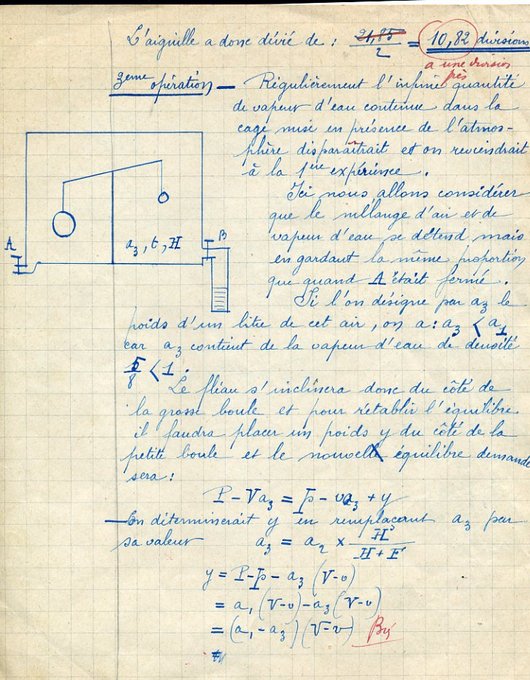 L'aiguille a donc dévié de : 21,85/2 = 10,82 divisions
à une division
près
3eme opération — Régulièrement l'infime quantité
de vapeur d'eau contenue dans la
cage mise en présence de l'atmos-
phère disparaîtrait et on reviendrait
à la 1ere expérience.
Ici nous allons considérer
que le mélange d'air et de
vapeur d'eau se détend mais
en gardant la même proportion
que quand A était fermé.
A
B
a3, t, H
Si l'on désigne par a3 le
poids d'un litre de cet air, on a : a3 < a1
car a3 contient de la vapeur d'eau de densité
5/8 < 1.
Le fléau s'inclinera donc du côté de
la grosse boule et pour rétablir l'équilibre
il faudra placer un poids y du côté de la
petite boule et le nouvel équilibre demandé
sera :
P - Va3 = p - va3 + y
On déterminerait y en remplaçant a3 par
sa valeur a3 = a2 x H/H + F
y = P - p - a3 (V-v)
= a1 (V-v) - a3 (V-v)
= (a1 - a3) (V-v) Bien